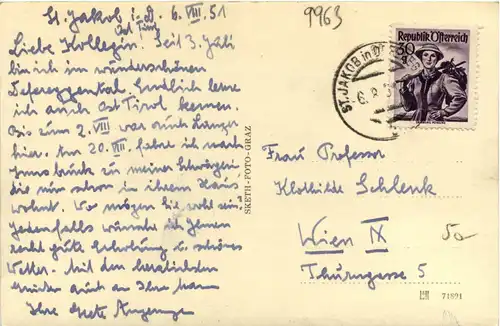 St. Jakob i. D. 6. VIII. 51
Ost Tirol
Liebe Kollegin! Seit 3. Juli
bin ich im wunderschönen
Defereggental. Endlich lerne
ich auch Ost Tirol kennen.
Bis zum 2. VIII war auch
hier. Am 20. VIII. fahre ich nach
Innsbruck zu meiner Schwägerin
die nun schon in ihrem Haus
wohnt. Wo mögen Sie wohl sein?
Jedenfalls wünsche ich Ihnen
recht gute Erholung u. schönes
Wetter. Mit den herzlichsten
auch an Ihre
Ihre Grete
SKETH-FOTO-GRAZ
9963
Republik Österreich
30 g
ST. JAKOB in
6. 8. 5
Frau Professor
Klothilde Schlenk
Wien IX
Thurngasse 5
50
71821